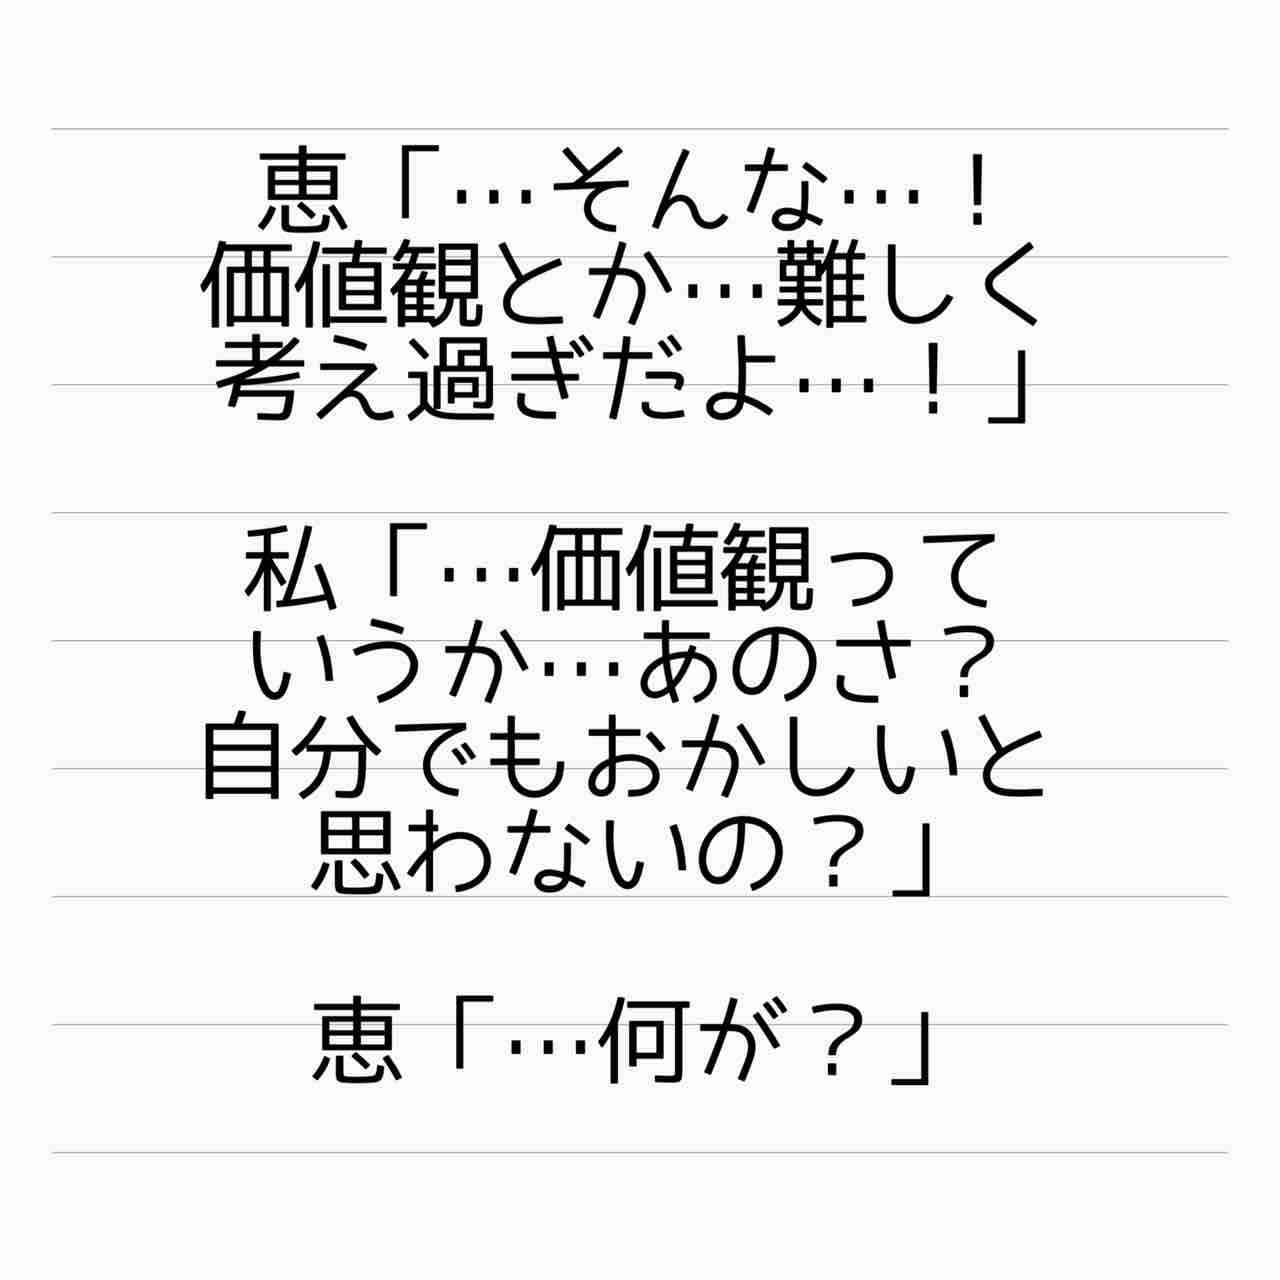 恵「…そんな…！
価値観とか…難しく
考え過ぎだよ…！」
私「…価値観って
いうか…あのさ？
自分でもおかしいと
思わないの？」
恵「…何が？」